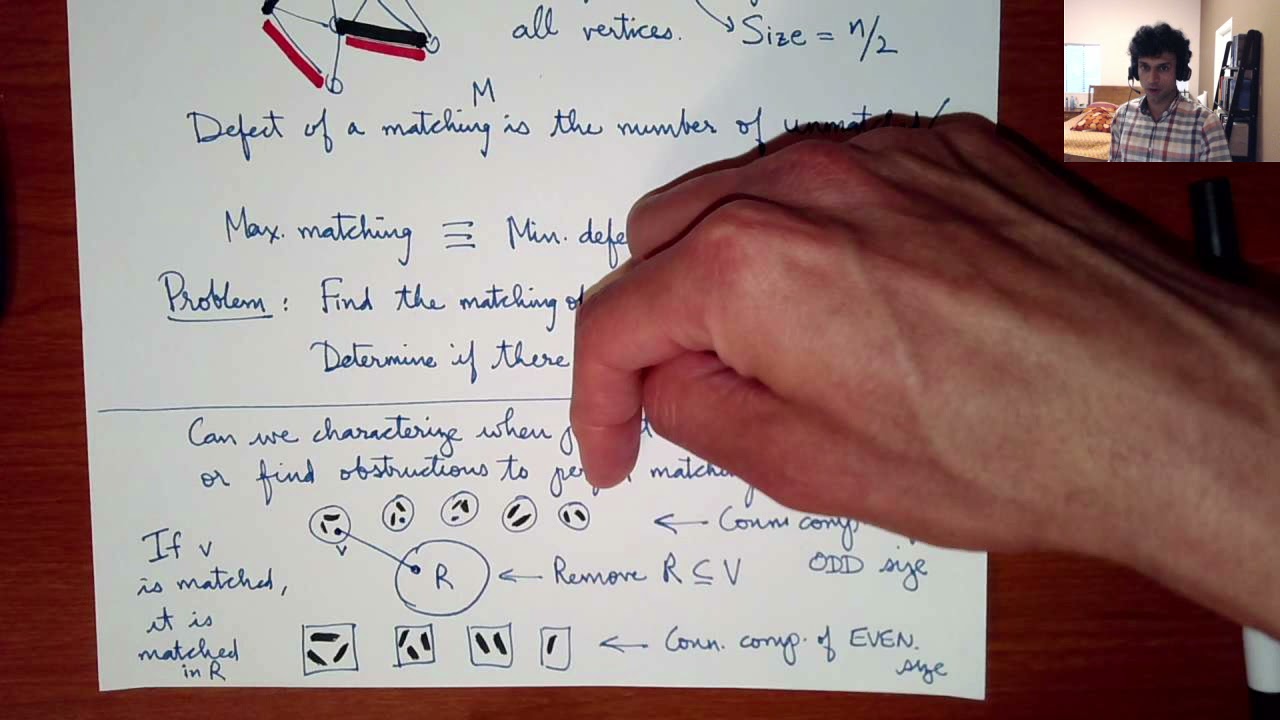 all vertices.
Size = n/2
M
Defect of a matching is the number of
Max. matching ≡ Min.
Problem: Find the matching
Determine if there
Can we characterize when
or find obstructions to
← Conn comp
ODD size
v
R
← Remove R ⊆ V
If v
is matched,
it is
matched
in R
← Conn. comp. of EVEN.
size